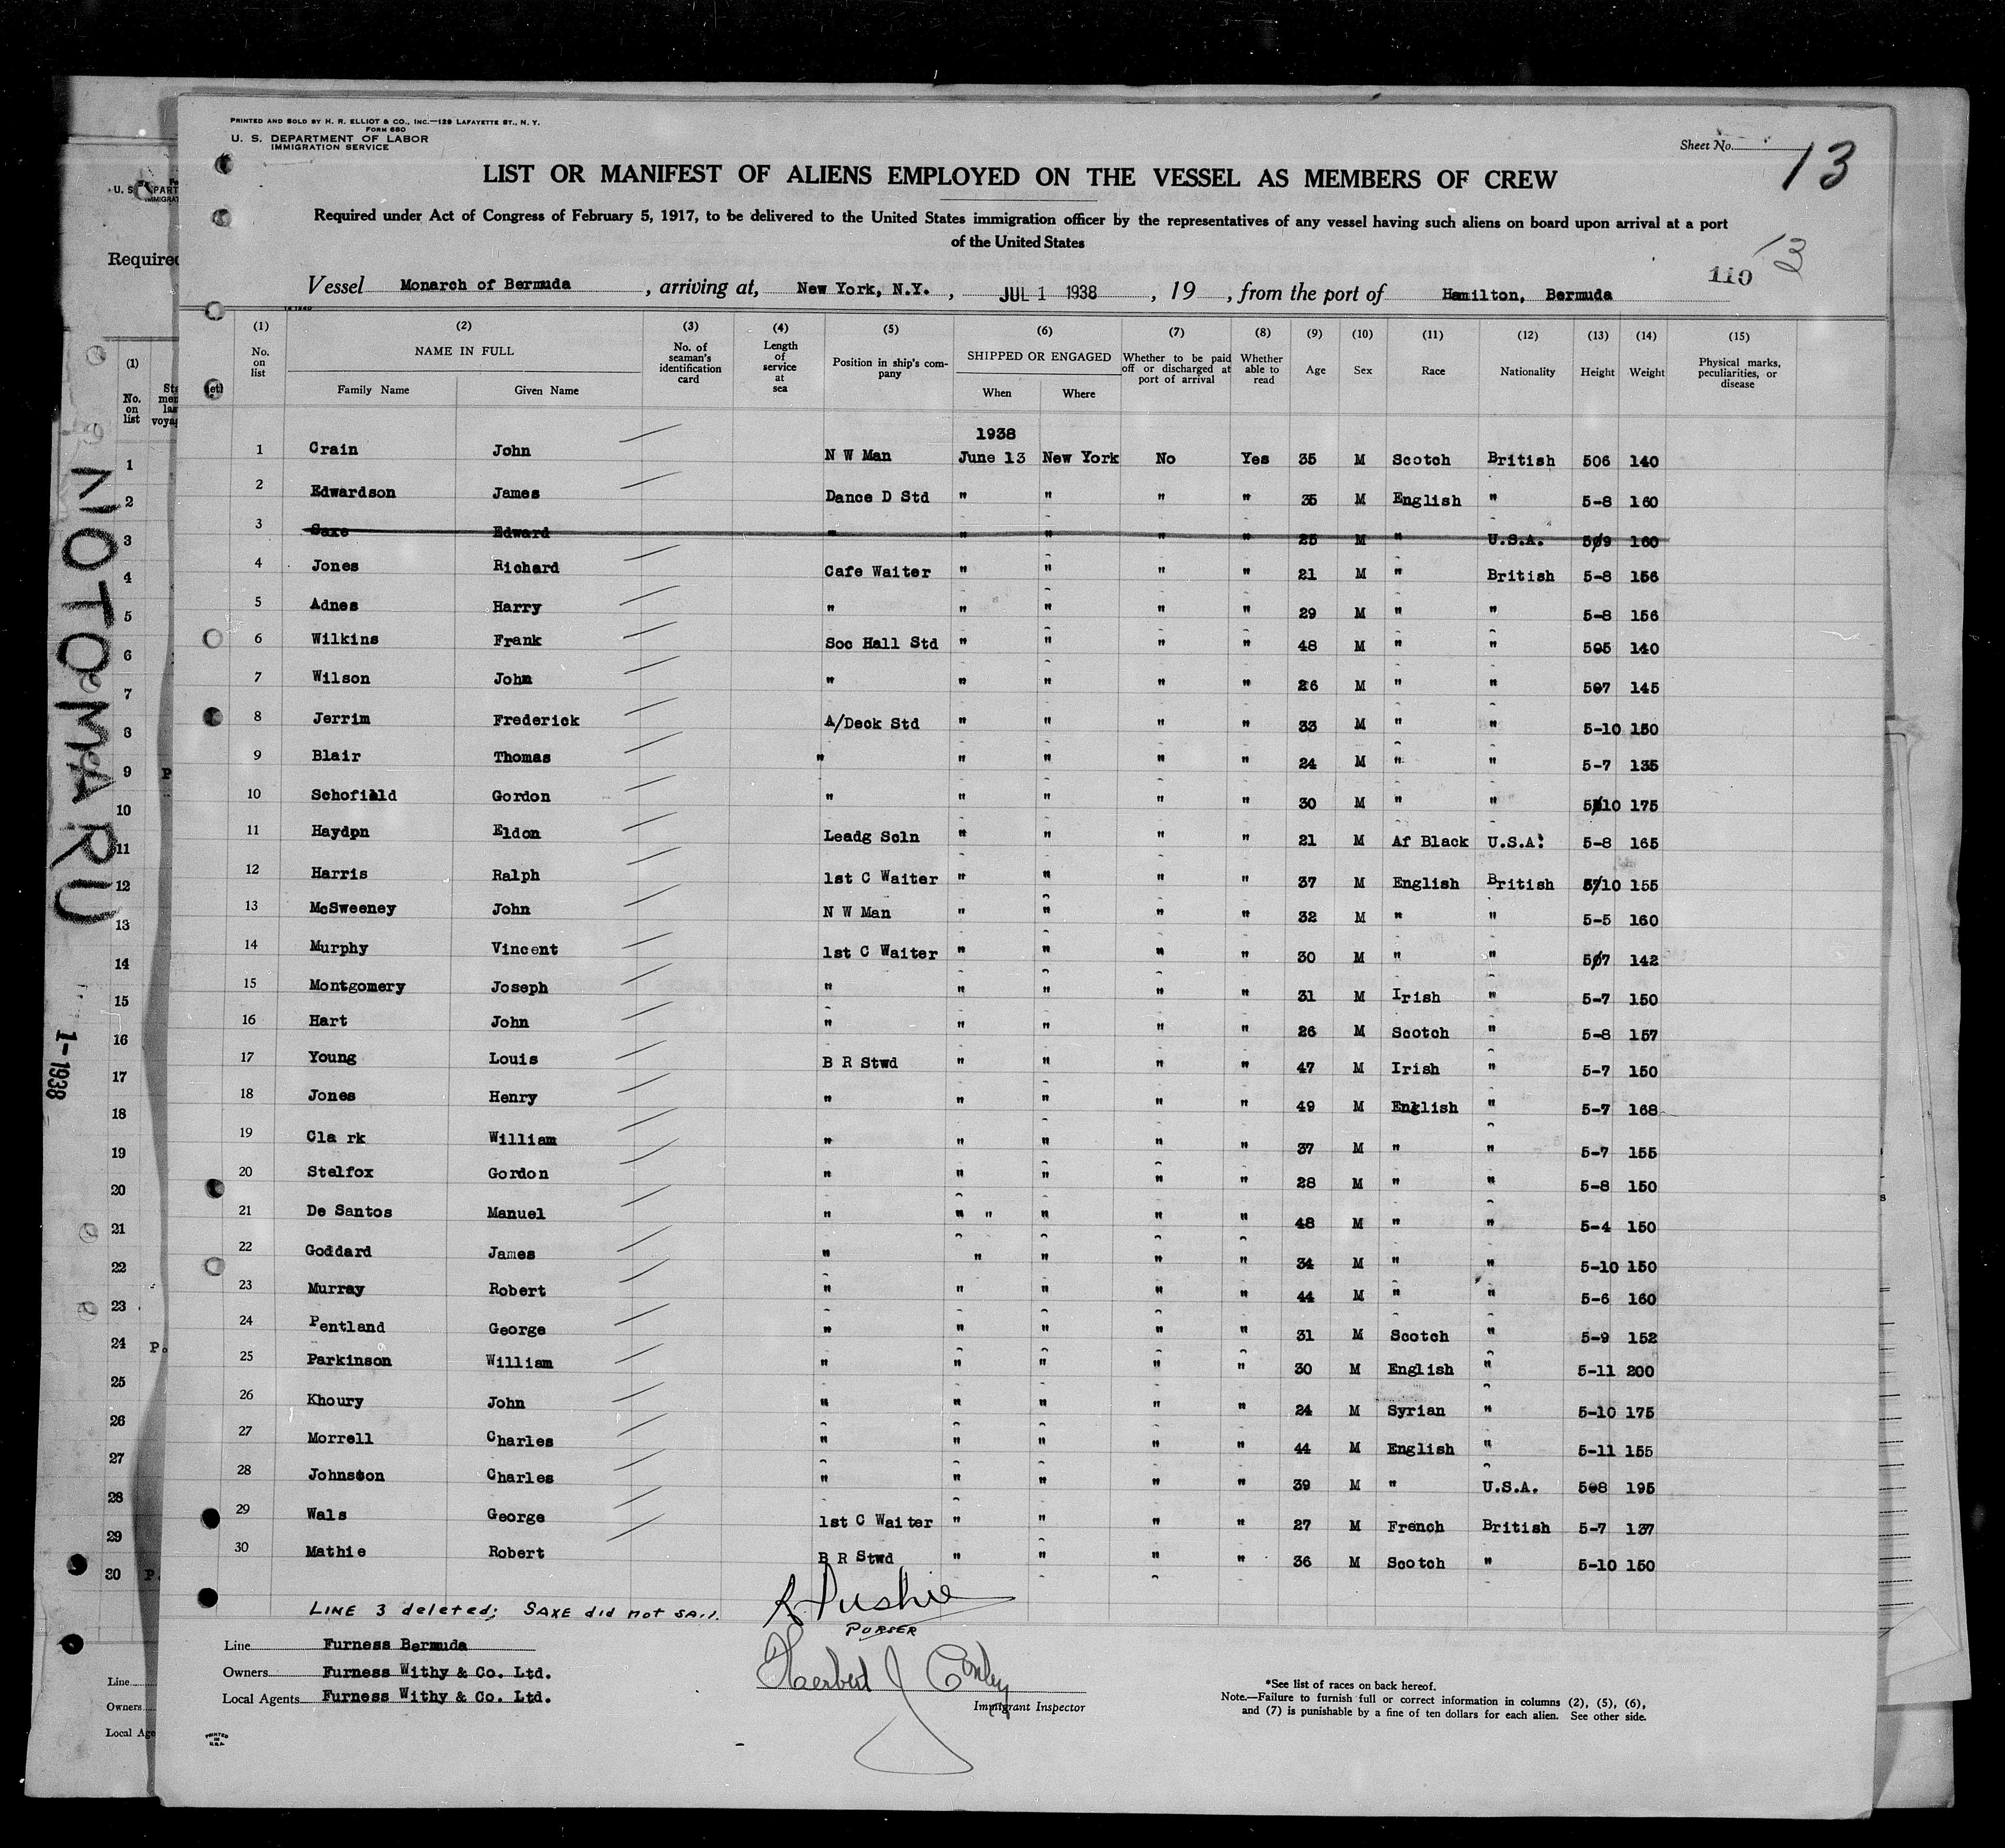 PRINTED AND SOLD BY H. R. ELLIOT & CO., INC.—129 LAFAYETTE ST., N. Y.
FORM 680
U. S. DEPARTMENT OF LABOR
IMMIGRATION SERVICE
Sheet No. 13
LIST OR MANIFEST OF ALIENS EMPLOYED ON THE VESSEL AS MEMBERS OF CREW
Required under Act of Congress of February 5, 1917, to be delivered to the United States immigration officer by the representatives of any vessel having such aliens on board upon arrival at a port
of the United States
110 13
Vessel Monarch of Bermuda, arriving at, New York, N.Y., JUL 1 1938, 19 , from the port of Hamilton, Bermuda
(1) (2) (3) (4) (5) (6) (7) (8) (9) (10) (11) (12) (13) (14) (15)
No. on list NAME IN FULL Family Name Given Name No. of seaman's identification card Length of service at sea Position in ship's company SHIPPED OR ENGAGED When Where Whether to be paid off or discharged at port of arrival Whether able to read Age Sex Race Nationality Height Weight Physical marks, peculiarities, or disease
1938
1 Crain John N W Man June 13 New York No Yes 35 M Scotch British 506 140
2 Edwardson James Dance D Std " " " " 35 M English " 5-8 160
3 Saxe Edward " " " " " 25 M " U.S.A. 509 160
4 Jones Richard Cafe Waiter " " " " 21 M " British 5-8 156
5 Adnes Harry " " " " " 29 M " " 5-8 156
6 Wilkins Frank Soc Hall Std " " " " 48 M " " 505 140
7 Wilson John " " " " " 26 M " " 507 145
8 Jerrim Frederick A/Deck Std " " " " 33 M " " 5-10 150
9 Blair Thomas " " " " " 24 M " " 5-7 135
10 Schofield Gordon " " " " " 30 M " " 5-10 175
11 Haydpn Eldon Leadg Scln " " " " 21 M Af Black U.S.A. 5-8 165
12 Harris Ralph 1st C Waiter " " " " 37 M English British 5/10 155
13 McSweeney John N W Man " " " " 32 M " " 5-5 160
14 Murphy Vincent 1st C Waiter " " " " 30 M " " 507 142
15 Montgomery Joseph " " " " " 31 M Irish " 5-7 150
16 Hart John " " " " " 26 M Scotch " 5-8 157
17 Young Louis B R Stwd " " " " 47 M Irish " 5-7 150
18 Jones Henry " " " " " 49 M English " 5-7 168
19 Cla rk William " " " " " 37 M " " 5-7 155
20 Stelfox Gordon " " " " " 28 M " " 5-8 150
21 De Santos Manuel " " " " " " 48 M " " 5-4 150
22 Goddard James " " " " " 34 M " " 5-10 150
23 Murray Robert " " " " " 44 M " " 5-6 160
24 Pentland George " " " " " 31 M Scotch " 5-9 152
25 Parkinson William " " " " " 30 M English " 5-11 200
26 Khoury John " " " " " 24 M Syrian " 5-10 175
27 Morrell Charles " " " " " 44 M English " 5-11 155
28 Johnston Charles " " " " " 39 M " U.S.A. 508 195
29 Wals George 1st C Waiter " " " " 27 M French British 5-7 137
30 Mathie Robert B R Stwd " " " " 36 M Scotch " 5-10 150
LINE 3 deleted; SAXE did not SAIL.
PURSER
Line Furness Bermuda
Owners Furness Withy & Co. Ltd.
Local Agents Furness Withy & Co. Ltd.
Herbert J Conley
Immigrant Inspector
*See list of races on back hereof.
Note.—Failure to furnish full or correct information in columns (2), (5), (6),
and (7) is punishable by a fine of ten dollars for each alien. See other side.
PRINTED IN U.S.A.
NOTO MARU
1-1938
Required
(1)
No. on list
1
2
3
4
5
6
7
8
9
10
11
12
13
14
15
16
17
18
19
20
21
22
23
24
25
26
27
28
29
30
Line
Owners
Local Age